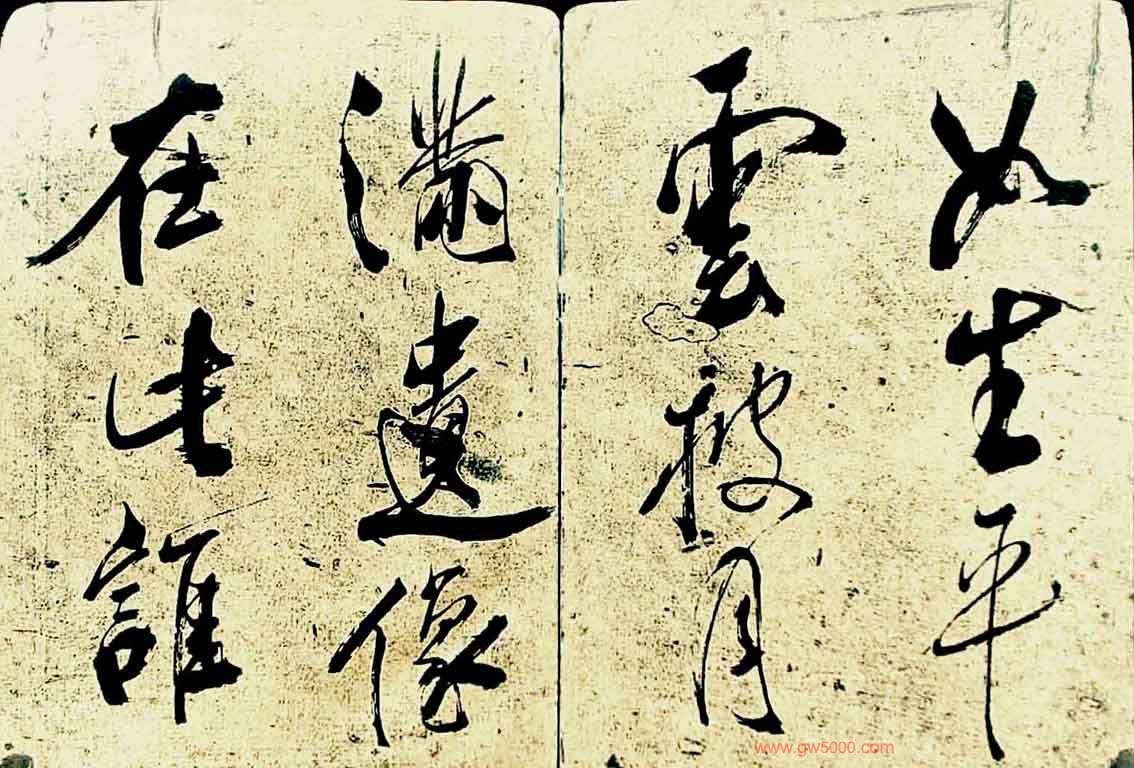 如生平
雲披月
滿遺像
在此誰
www.gw5000.com